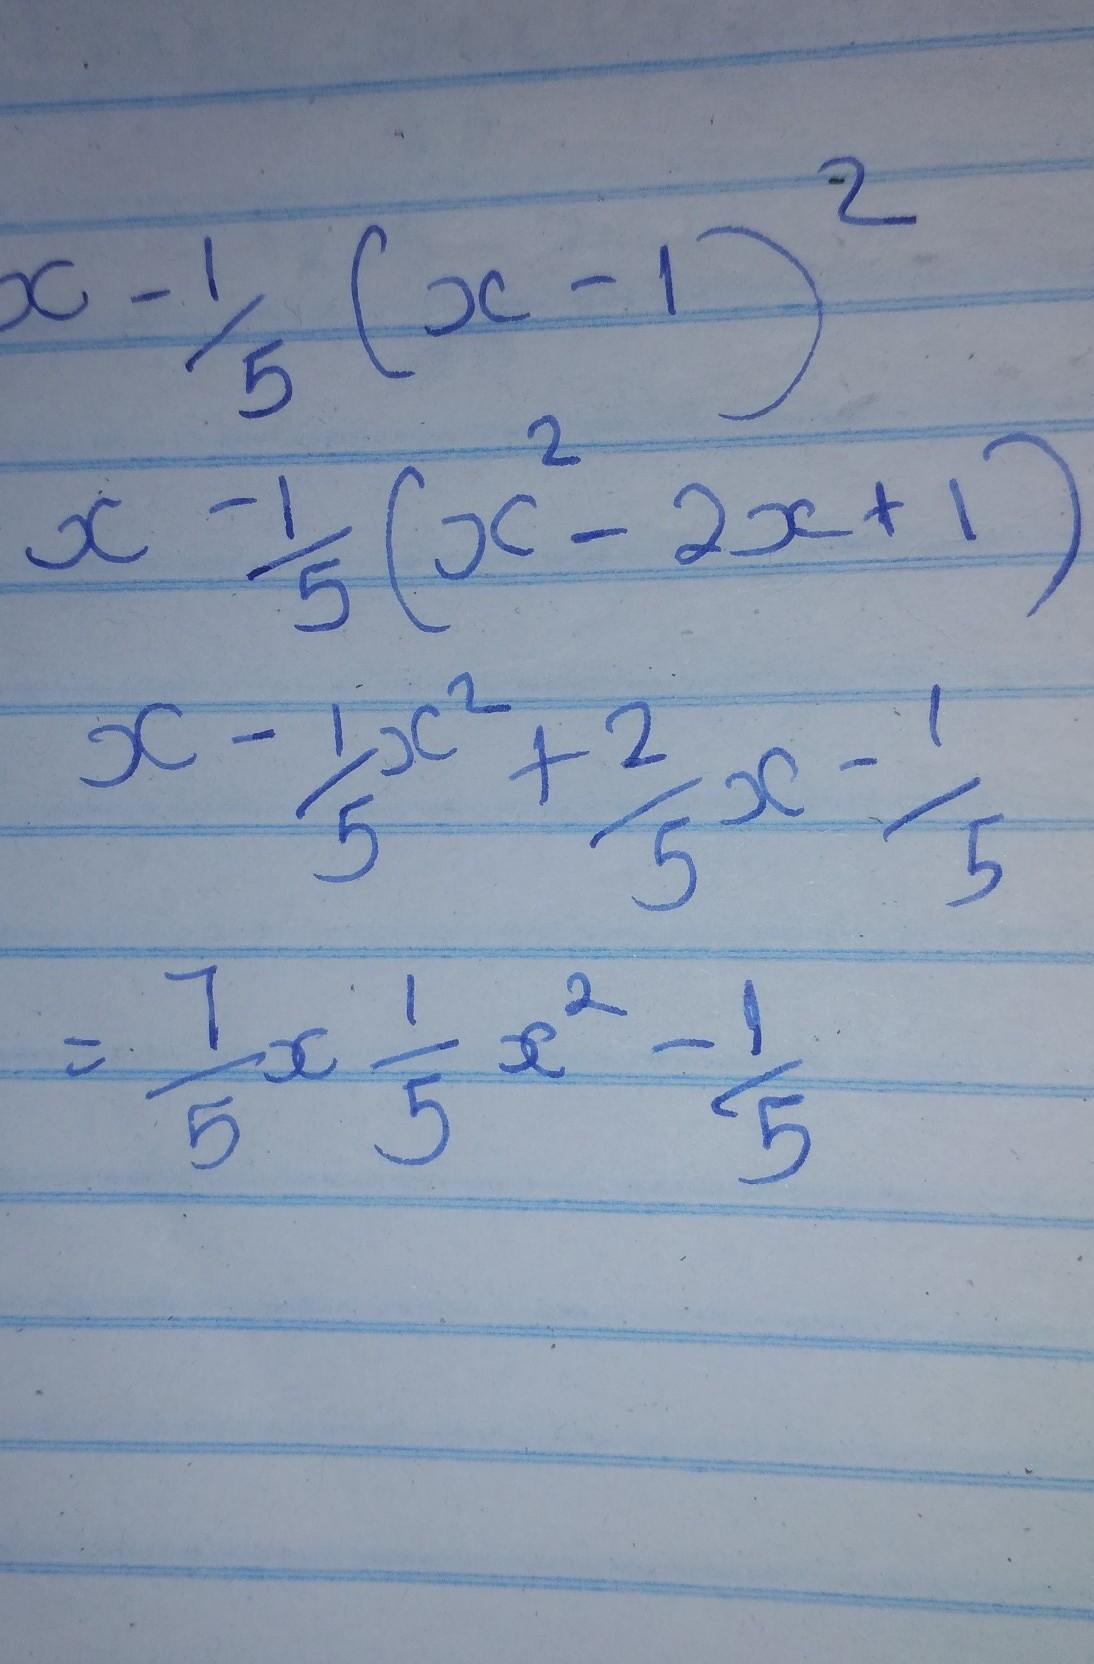 x - 1/5 (x - 1)²
x - 1/5 (x² - 2x + 1)
x - 1/5 x² + 2/5 x - 1/5
= 7/5 x 1/5 x² - 1/5